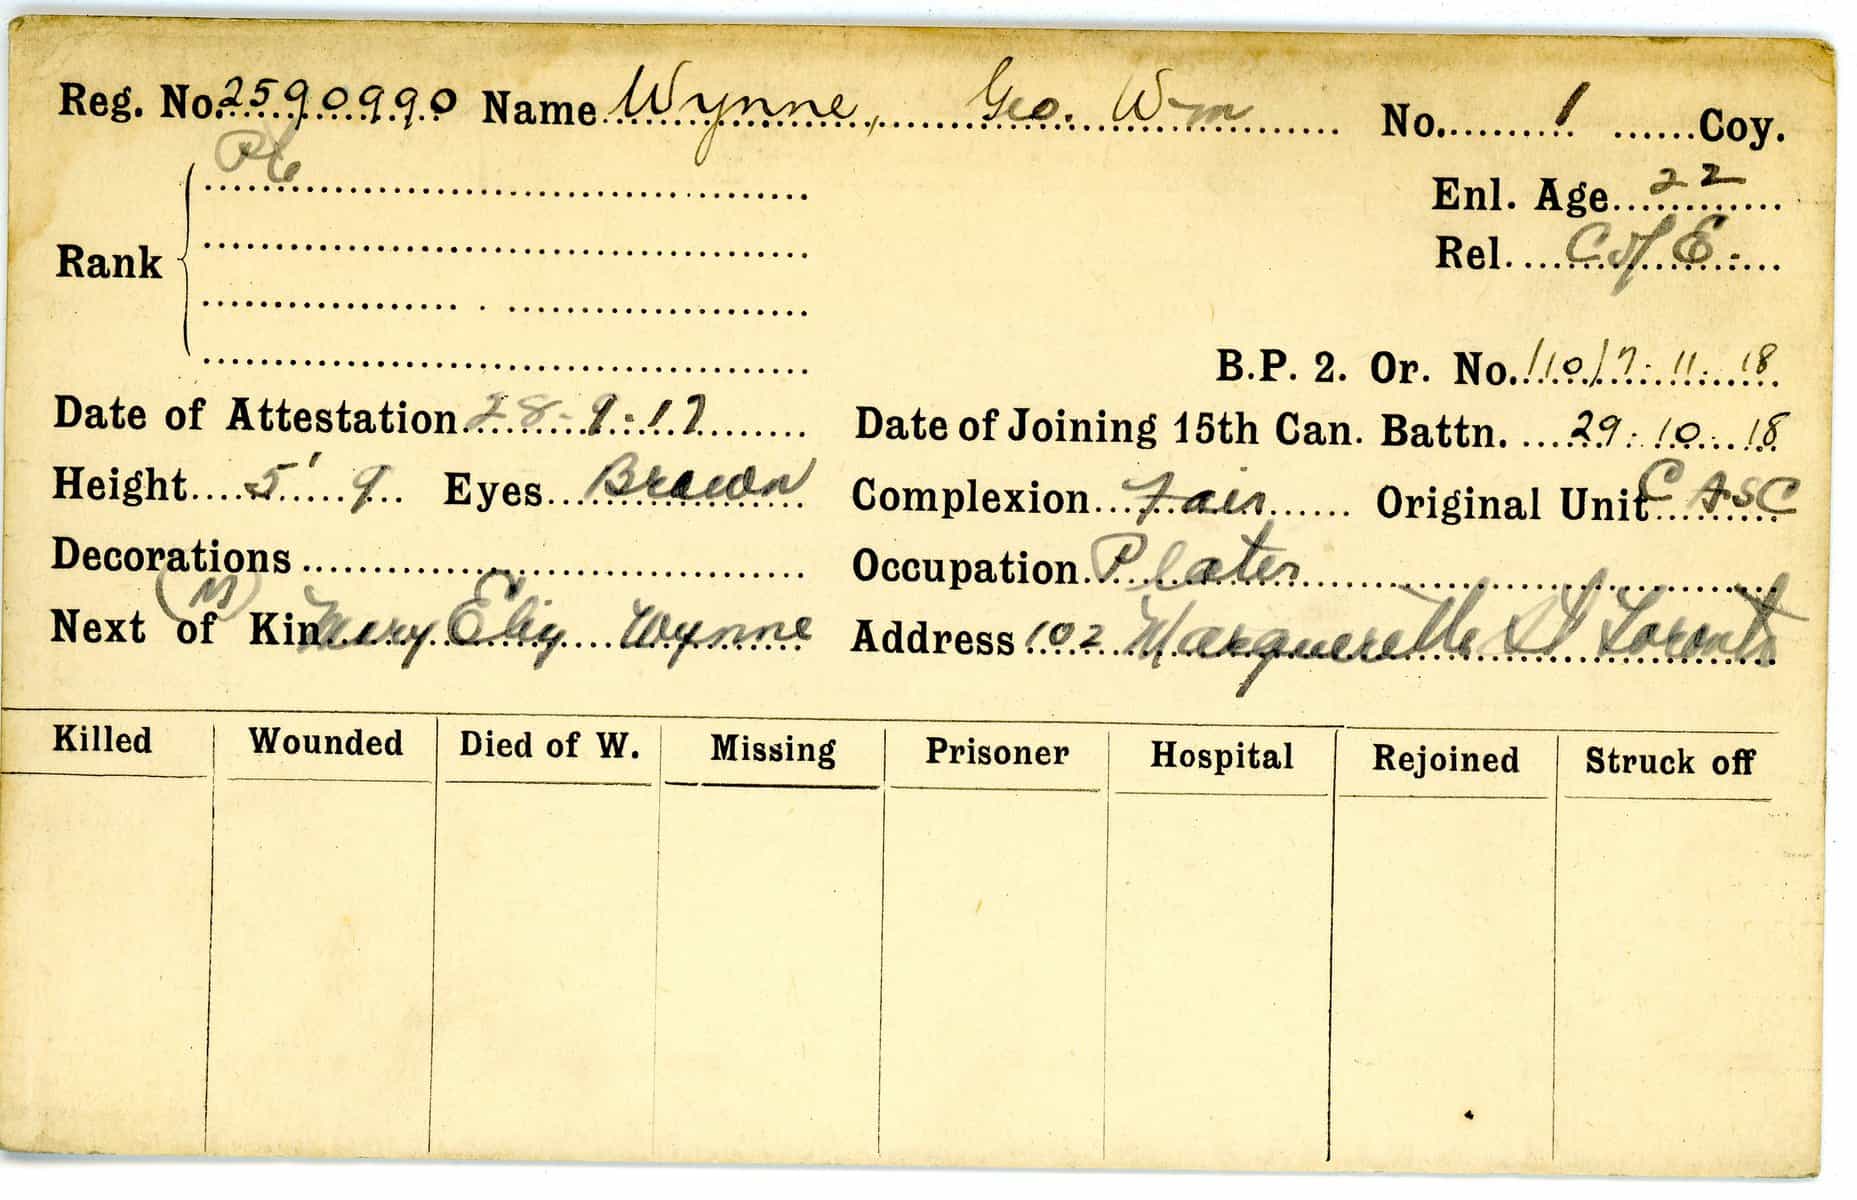 Reg. No. 2590990 Name Wynne, Geo. Wm No. 1 Coy.
Pte
Enl. Age 22
Rank
Rel. C of E.
B.P. 2. Or. No. 110/7.11.18
Date of Attestation 28-9-17 Date of Joining 15th Can. Battn. 29.10.18
Height 5' 9 Eyes Brown Complexion Fair Original Unit CASC
Decorations Occupation Plater
(M)
Next of Kin Mary Eliz Wynne Address 102 Marguerette St Toronto
Killed Wounded Died of W. Missing Prisoner Hospital Rejoined Struck off